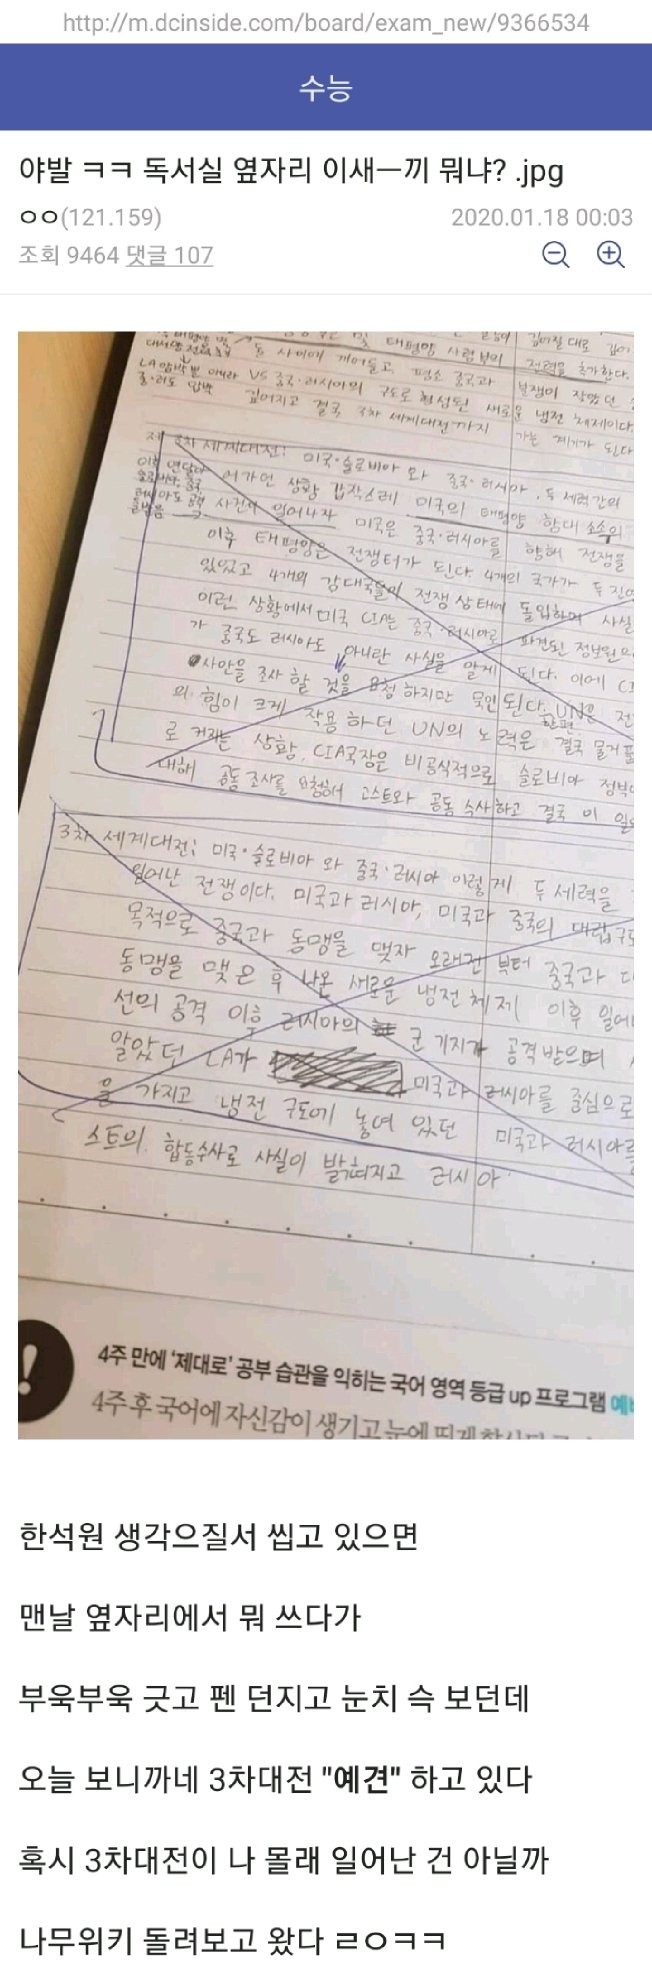 http://m.dcinside.com/board/exam_new/9366534
수능
야발 ㅋㅋ 독서실 옆자리 이새ㅡ끼 뭐냐? .jpg
ㅇㅇ(121.159)
2020.01.18 00:03
조회 9464 댓글 107
태평양 사령부의
둘 사이에 끼어들고, 평소 중국과
전력을 추가한다.
VS 중국·러시아의 구도로 형성된 새로운 냉전 체제이다.
깊어지고 결국 3차 세계대전까지 가는 계기가 된다
3차 세계대전: 미국·슬로비아 와 중국·러시아, 두 세력간의
어가던 상황 갑작스레 미국의 태평양 함대 소속의
사건이 일어나자 미국은 중국·러시아를 향해 전쟁을
이후 태평양은 전쟁터가 된다. 4개의 국가가 두 진영
있었고 4개의 강대국들이 전쟁 상태에 돌입하며 사실
이런 상황에서 미국 CIA는 중국·러시아로 파견된 정보원의
가 중국도 러시아도 아니란 사실을 알게 된다. 이에 CI
사안을 조사 할 것을 요청 하지만 묵인 된다. 한편 UN은 전
의 힘이 크게 작용 하던 UN의 노력은 결국 물거품
로 커지는 상황, CIA국장은 비공식적으로 슬로비아 정부
대해 공동 조사를 요청해 고스트와 공동 수사하고 결국 이 일
3차 세계대전: 미국·슬로비아 와 중국·러시아 이렇게 두 세력을
일어난 전쟁이다. 미국과 러시아, 미국과 중국의 대립구도
목적으로 중국과 동맹을 맺자 오래전 부터 중국과
동맹을 맺은 후 나온 새로운 냉전 체제 이후 일어
선의 공격 이후 러시아의 군 기지가 공격 받으며
알았던 LA가 미국과 러시아를 중심으로
을 가지고 냉전 구도에 놓여 있던 미국과 러시아를
스트의 합동수사로 사실이 밝혀지고 러시아
!
4주 만에 '제대로' 공부 습관을 익히는 국어 영역 등급 up 프로그램
4주 후 국어에 자신감이 생기고 눈에 띄게
한석원 생각으질서 씹고 있으면
맨날 옆자리에서 뭐 쓰다가
부욱부욱 긋고 펜 던지고 눈치 슥 보던데
오늘 보니까네 3차대전 "예견" 하고 있다
혹시 3차대전이 나 몰래 일어난 건 아닐까
나무위키 돌려보고 왔다 ㄹㅇㅋㅋ